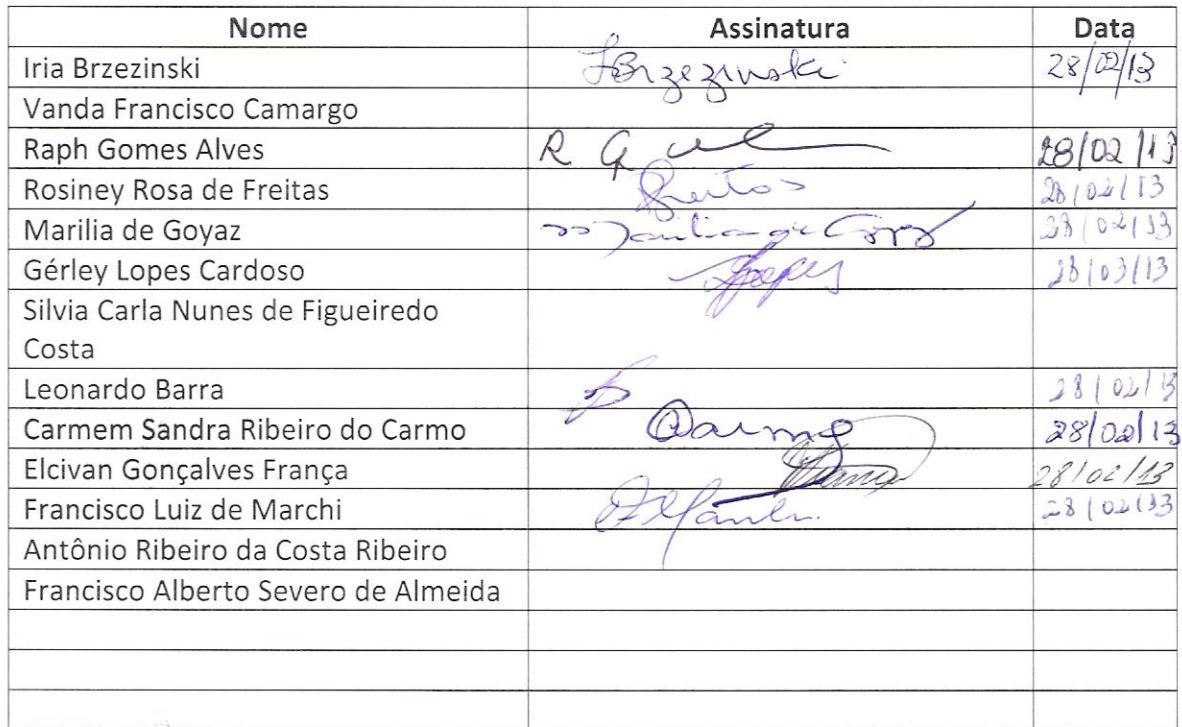 Nome Assinatura Data
Iria Brzezinski IBrzezinski 28/02/13
Vanda Francisco Camargo
Raph Gomes Alves R G 28/02/13
Rosiney Rosa de Freitas Freitas 28/02/13
Marilia de Goyaz Marilia de Goyaz 28/02/13
Gérley Lopes Cardoso Lopes 28/03/13
Silvia Carla Nunes de Figueiredo
Costa
Leonardo Barra 28/02/13
Carmem Sandra Ribeiro do Carmo Carmo 28/02/13
Elcivan Gonçalves França 28/02/13
Francisco Luiz de Marchi 28/02/13
Antônio Ribeiro da Costa Ribeiro
Francisco Alberto Severo de Almeida